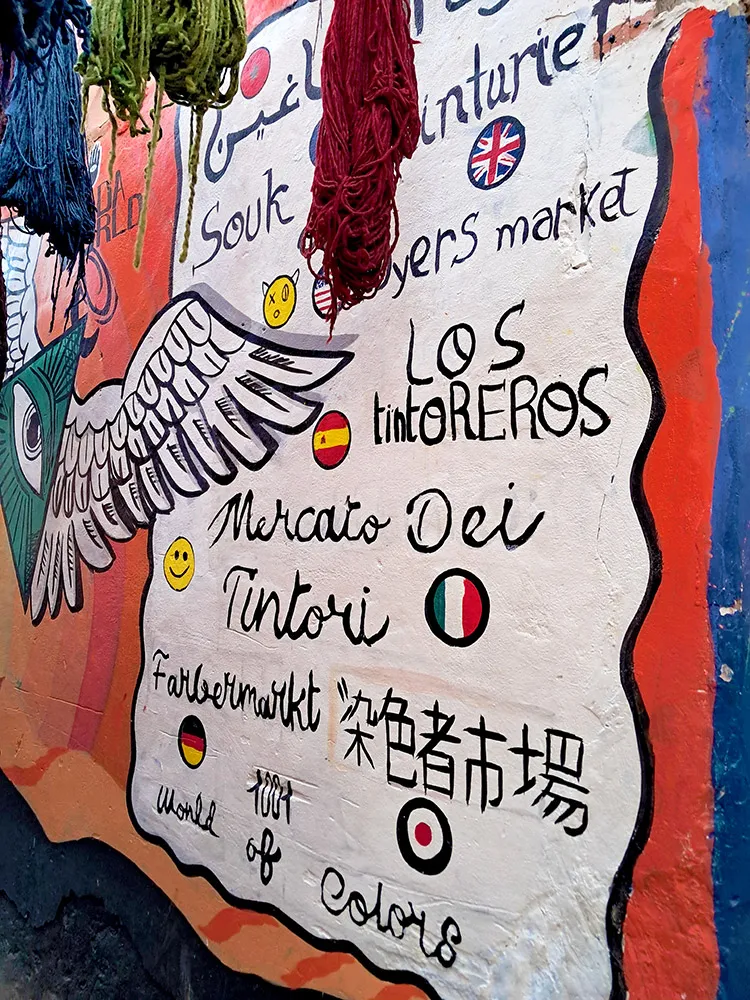 اغين
inturier
Souk yers market
LOS
tintOREROS
Mercato Dei
Tintori
Farbermarkt "染色者市場
1001
World of Colors